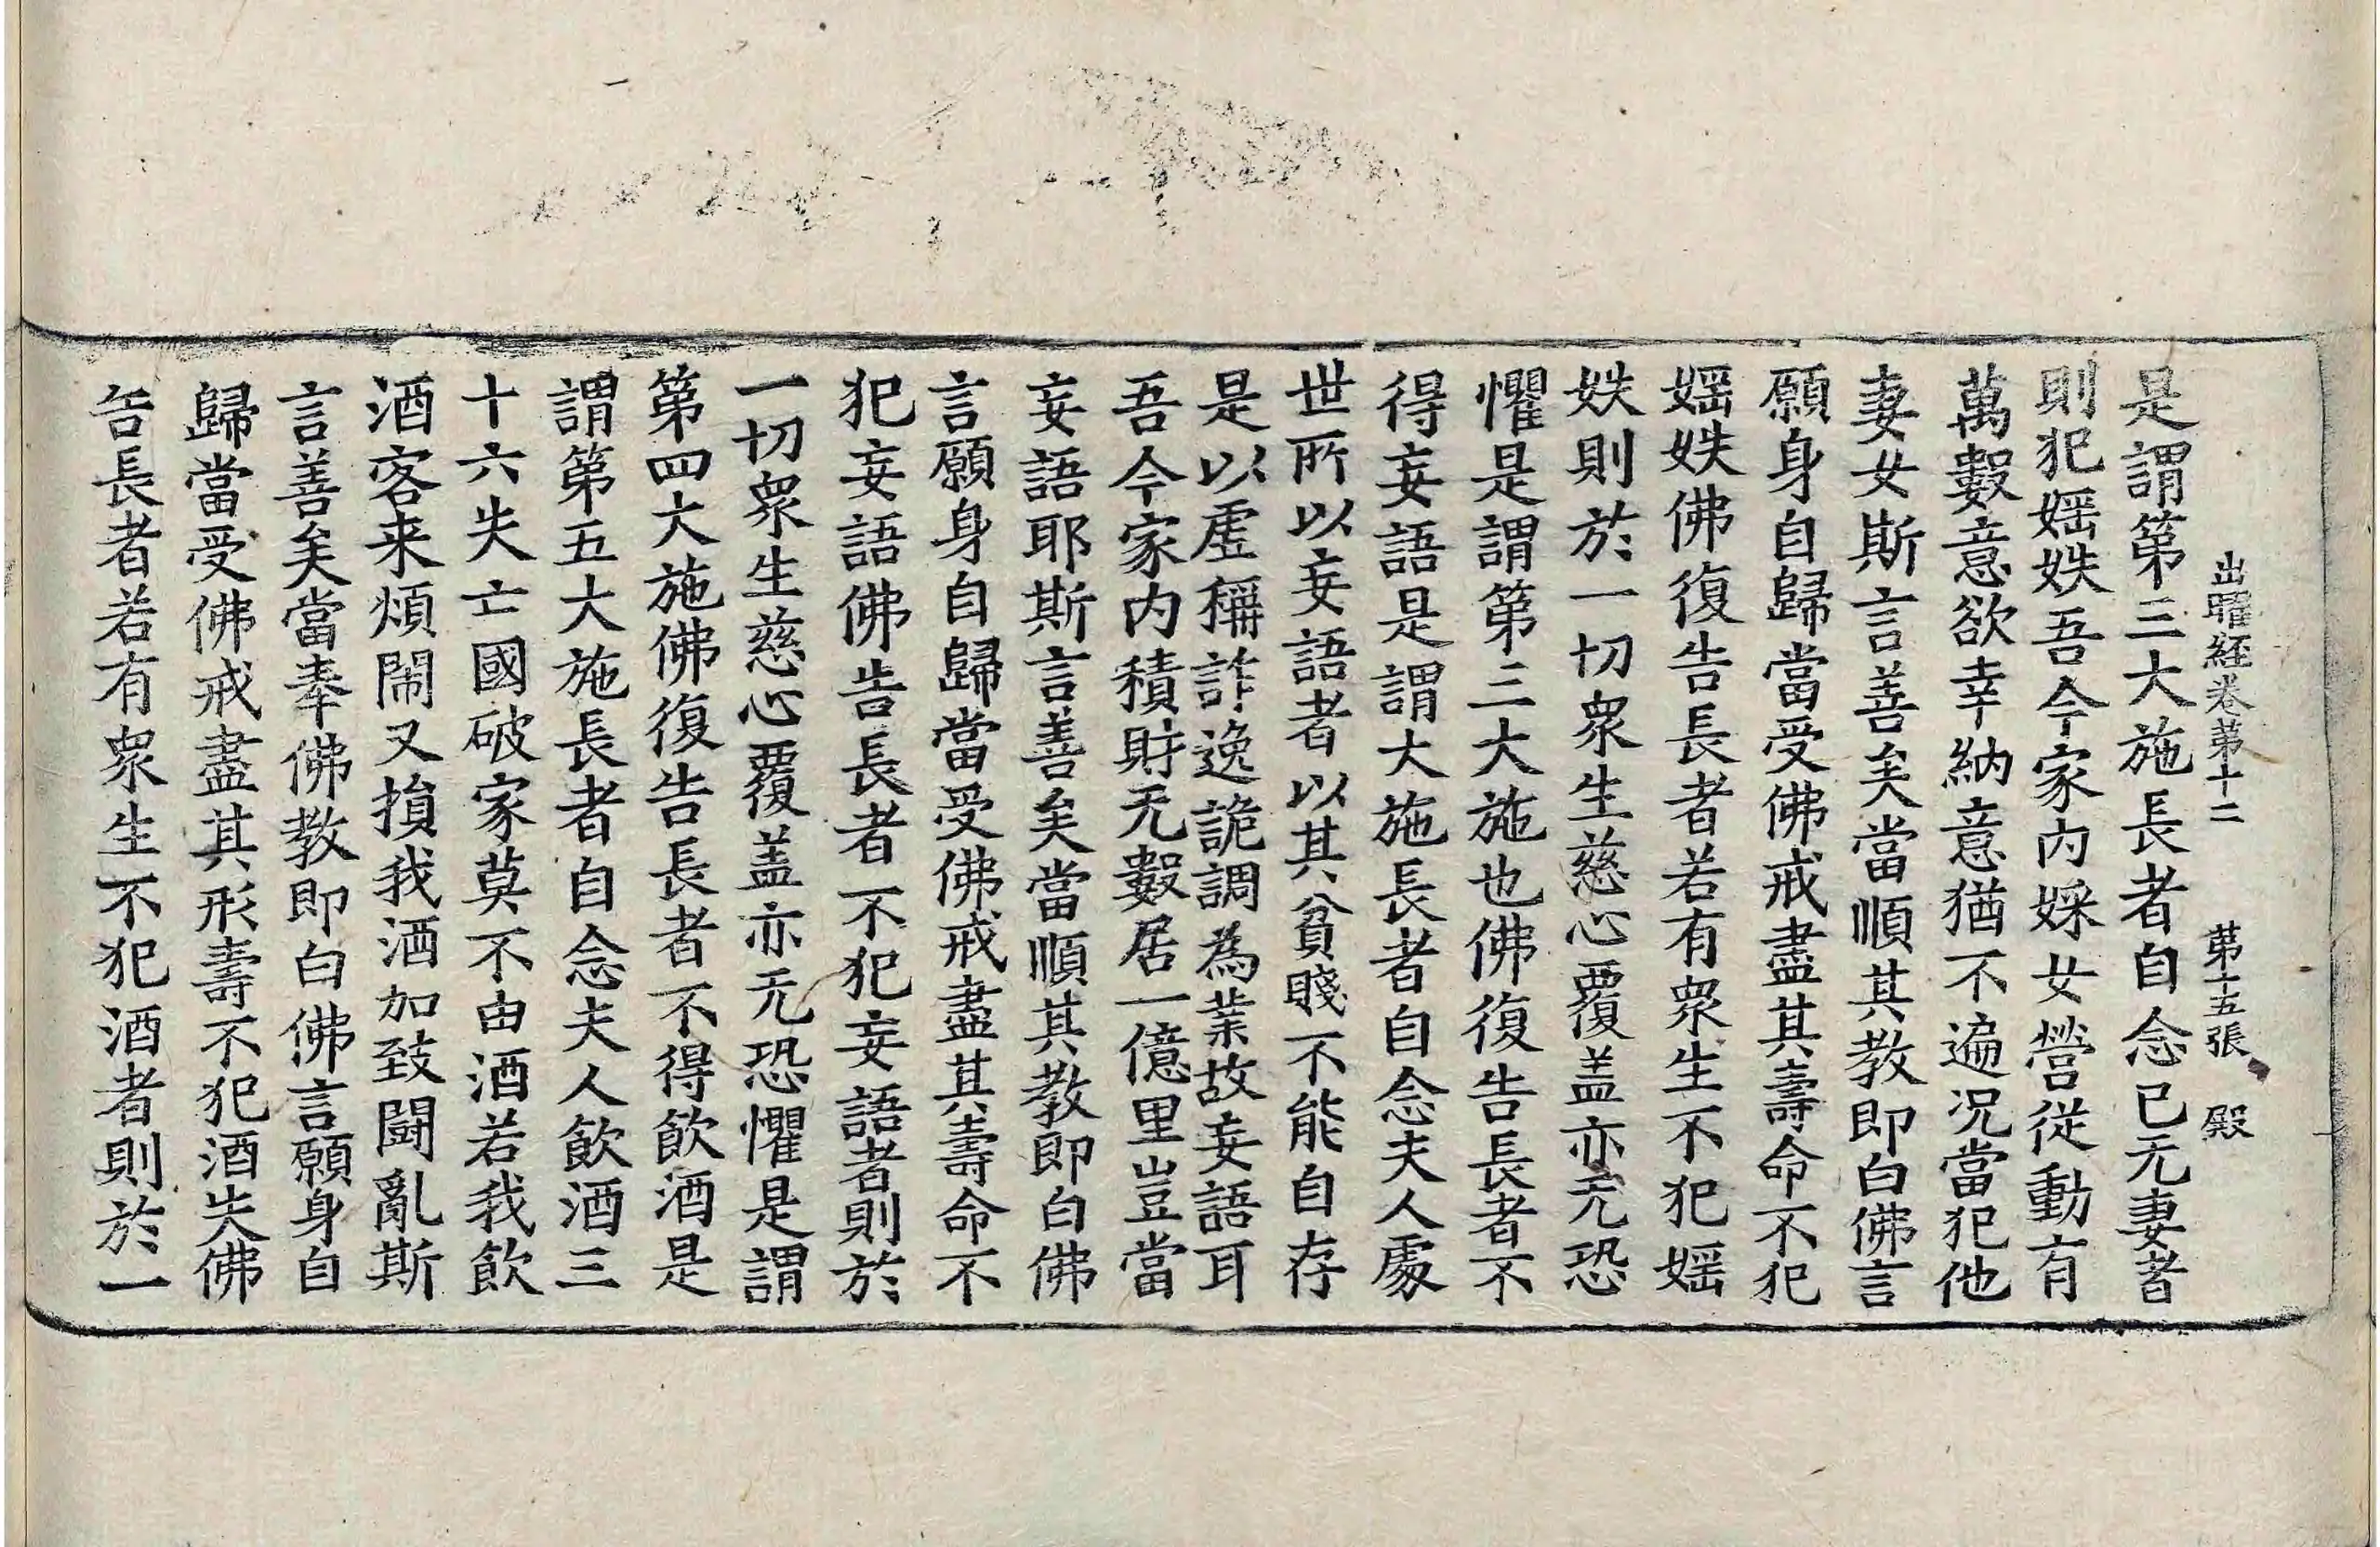 出曜経卷第十二 第十五張 殿
是謂第三大施長者自念已无妻者
則犯婬妷吾今家內婇女營從動有
萬數意欲幸納意猶不遍況當犯他
妻女斯言善矣當順其教即白佛言
願身自歸當受佛戒盡其壽命不犯
婬妷佛復告長者若有衆生不犯婬
妷則於一切衆生慈心覆盖亦无恐
懼是謂第三大施也佛復告長者不
得妄語是謂大施長者自念夫人處
世所以妄語者以其貧賤不能自存
是以虛稱詐逸詭調為業故妄語耳
吾今家内積財无數居一億里豈當
妄語耶斯言善矣當順其教即白佛
言願身自歸當受佛戒盡其壽命不
犯妄語佛告長者不犯妄語者則於
一切衆生慈心覆盖亦无恐懼是謂
第四大施佛復告長者不得飲酒是
謂第五大施長者自念夫人飲酒三
十六失亡國破家莫不由酒若我飲
酒客来煩鬧又損我酒加致鬪亂斯
言善矣當奉佛教即白佛言願身自
歸當受佛戒盡其形壽不犯酒失佛
告長者若有衆生不犯酒者則於一